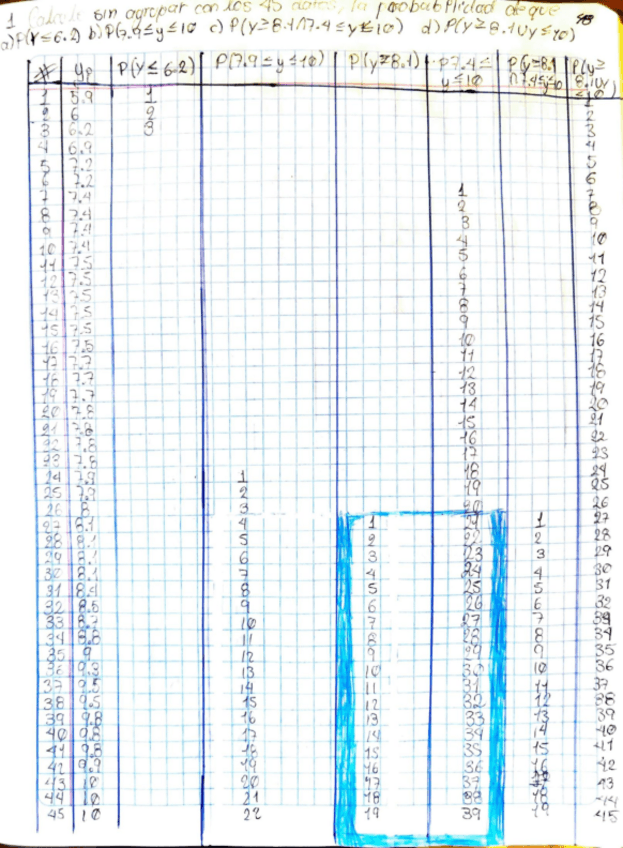 1 Calcule sin agrupar con los 45 datos, la probabilidad de que
a) P(Y≤6.2) b) P(7.9≤y≤10 c) P(y≥8.1∩7.4≤y≤10) d) P(y≥8.1∪y≤10)
# yi P(y≤6.2) P(7.9≤y≤10) P(y≥8.1) P7.4≤y≤10 P(y≥8.1∩7.4≤y≤10 P(y≥8.1∪y≤10)
1 5.9 1 1
2 6 2 2
3 6.2 3 3
4 6.9 4
5 7.2 5
6 7.2 6
7 7.4 1 7
8 7.4 2 8
9 7.4 3 9
10 7.4 4 10
11 7.5 5 11
12 7.5 6 12
13 7.5 7 13
14 7.5 8 14
15 7.5 9 15
16 7.5 10 16
17 7.7 11 17
18 7.7 12 18
19 7.7 13 19
20 7.8 14 20
21 7.8 15 21
22 7.8 16 22
23 7.8 17 23
24 7.9 1 18 24
25 7.9 2 19 25
26 8 3 20 26
27 8.1 4 1 21 1 27
28 8.1 5 2 22 2 28
29 8.1 6 3 23 3 29
30 8.1 7 4 24 4 30
31 8.4 8 5 25 5 31
32 8.6 9 6 26 6 32
33 8.7 10 7 27 7 33
34 8.8 11 8 28 8 34
35 9 12 9 29 9 35
36 9.3 13 10 30 10 36
37 9.5 14 11 31 11 37
38 9.5 15 12 32 12 38
39 9.8 16 13 33 13 39
40 9.8 17 14 34 14 40
41 9.8 18 15 35 15 41
42 9.9 19 16 36 16 42
43 10 20 17 37 17 43
44 10 21 18 38 18 44
45 10 22 19 39 19 45